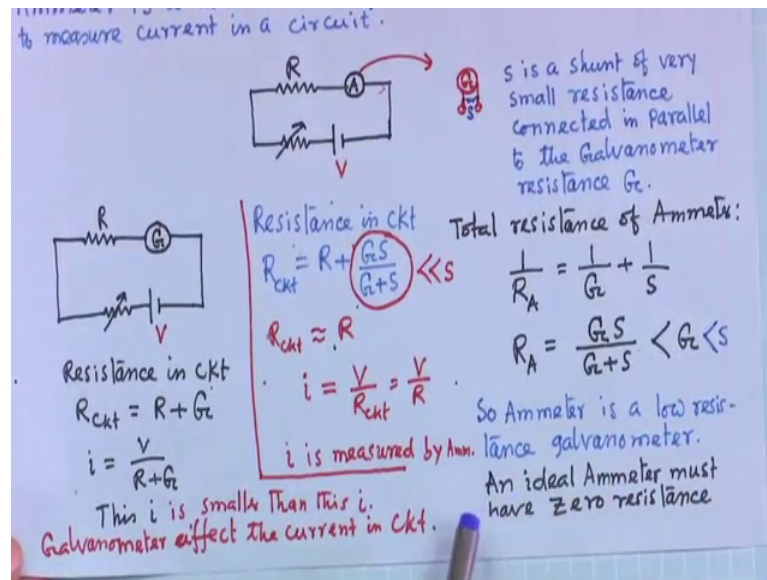 to measure current in a circuit.
R
A
V
G
S
S is a shunt of very
small resistance
connected in parallel
to the Galvanometer
resistance G.
R
G
V
Resistance in ckt
R_ckt = R+G
i = V/(R+G)
This i is smaller Than This i.
Galvanometer affect the current in ckt.
Resistance in ckt
R_ckt = R + GS/(G+S) << S
R_ckt ≈ R
i = V/R_ckt = V/R
i is measured by Amm.
Total resistance of Ammeter:
1/R_A = 1/G + 1/S
R_A = GS/(G+S) < G < S
So Ammeter is a low resis-
tance galvanometer.
An ideal Ammeter must
have zero resistance